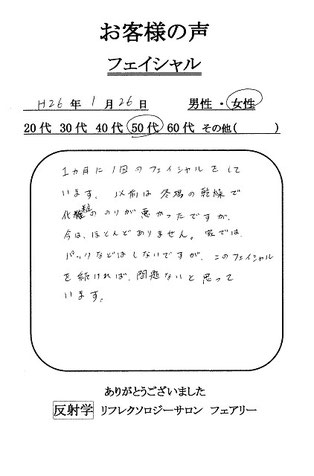 お客様の声
フェイシャル
H26年 1月26日 男性・女性
20代 30代 40代 50代 60代 その他( )
1カ月に1回のフェイシャルをして
います。以前は冬場の乾燥で
化粧ののりが悪かったですが、
今は、ほとんどありません。家では、
パックなどはしないですが、このフェイシャル
を続ければ、問題ないと思って
います。
ありがとうございました
反射学 リフレクソロジーサロン フェアリー